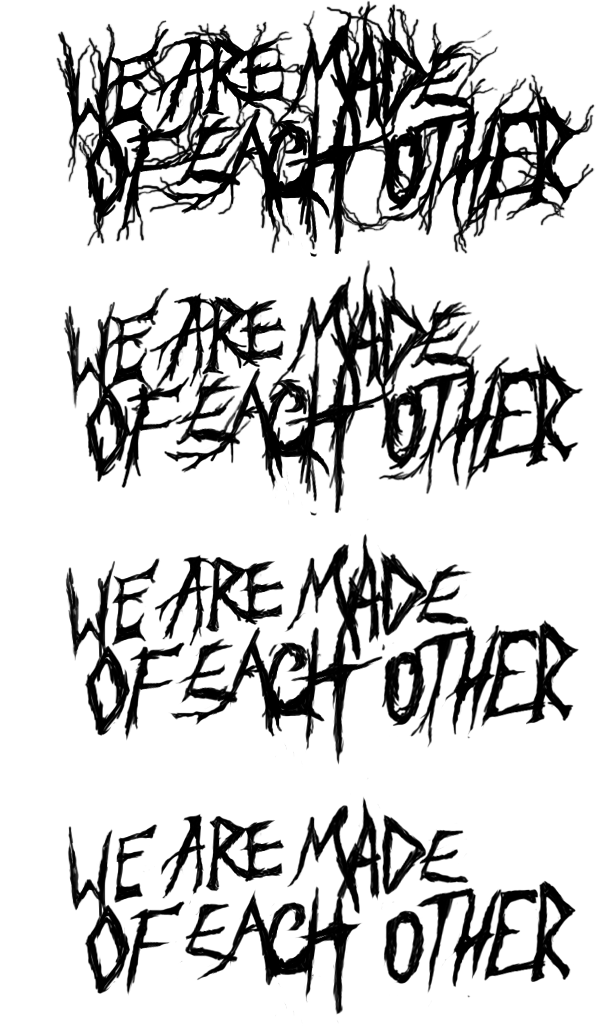 WE ARE MADE
OF EACH OTHER
WE ARE MADE
OF EACH OTHER
WE ARE MADE
OF EACH OTHER
WE ARE MADE
OF EACH OTHER